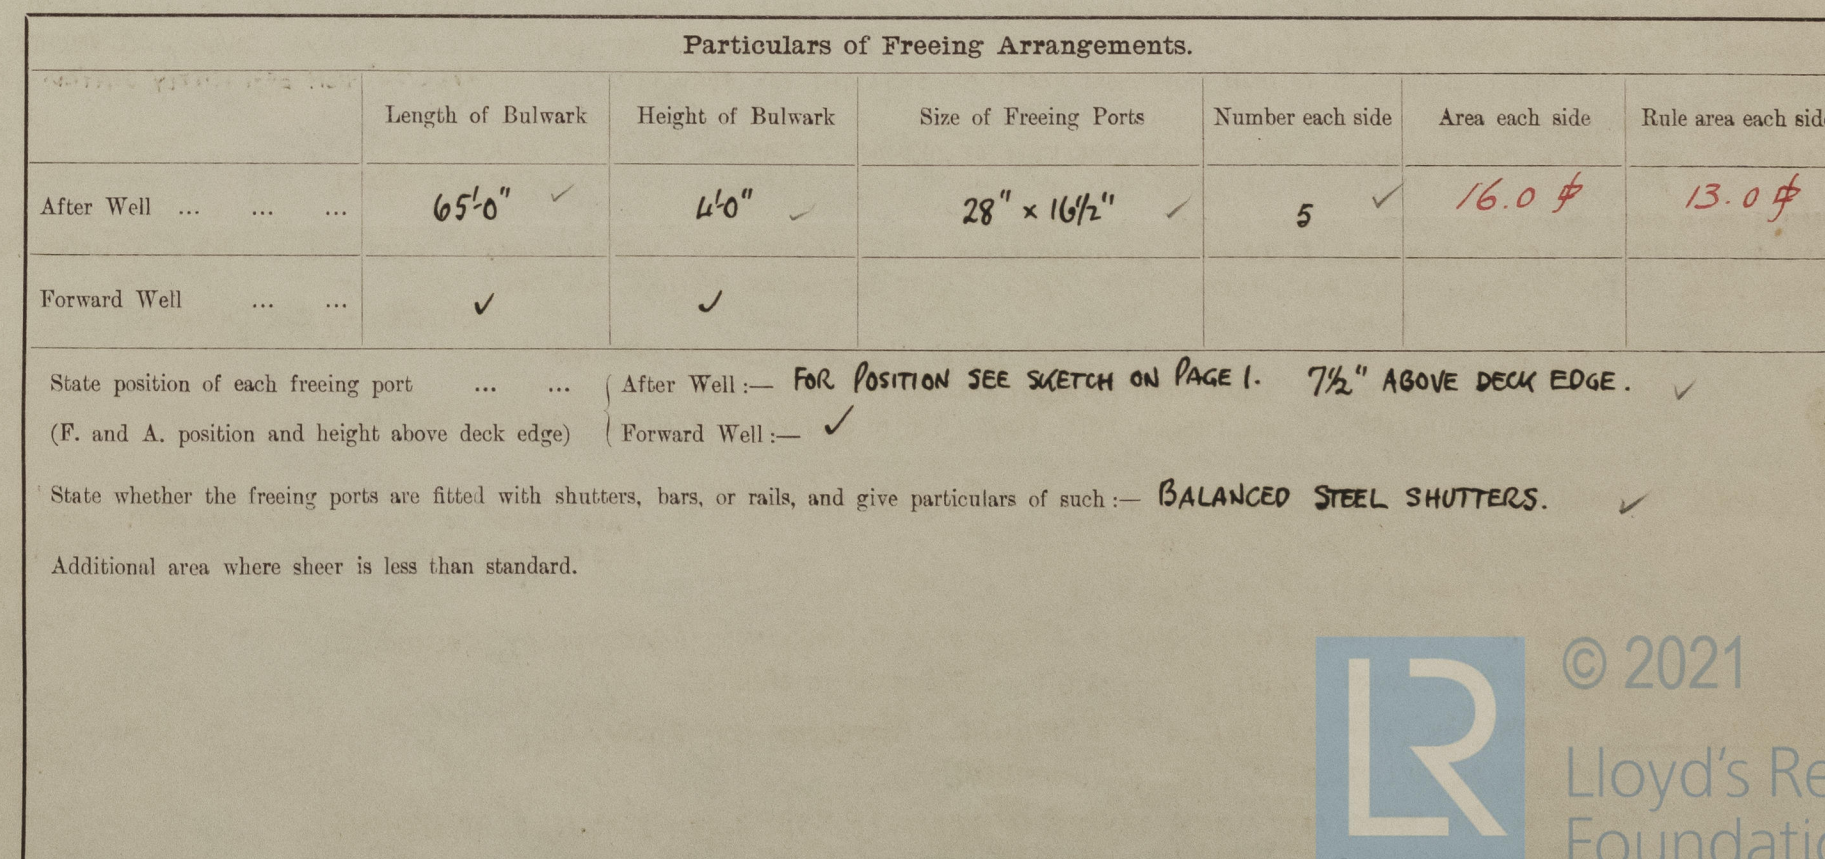 Particulars of Freeing Arrangements.
Length of Bulwark Height of Bulwark Size of Freeing Ports Number each side Area each side Rule area each sid
After Well ... ... ... 65'-0" ✓ 4'-0" ✓ 28" x 16½" ✓ 5 ✓ 16.0 ▯' 13.0 ▯'
Forward Well ... ... ✓ ✓
State position of each freeing port ... ... After Well :— FOR POSITION SEE SKETCH ON PAGE 1. 7½" ABOVE DECK EDGE. ✓
(F. and A. position and height above deck edge) Forward Well :— ✓
State whether the freeing ports are fitted with shutters, bars, or rails, and give particulars of such :— BALANCED STEEL SHUTTERS. ✓
Additional area where sheer is less than standard.
© 2021
LR
Lloyd's Re
Foundatio